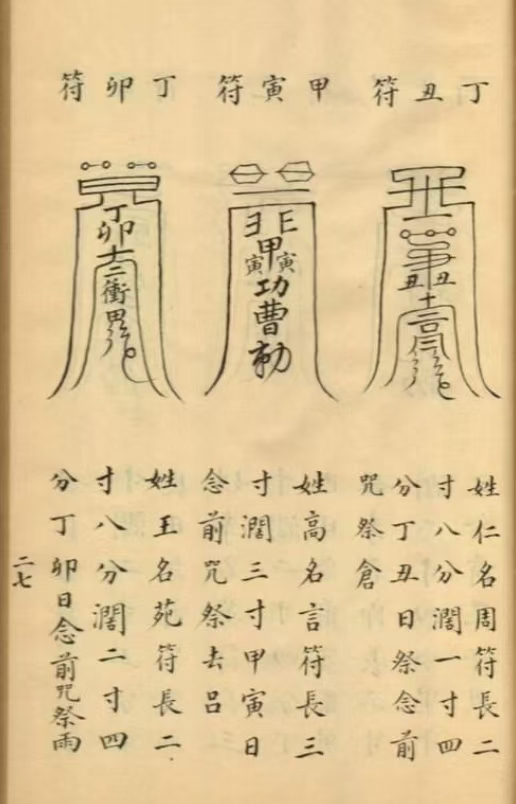 丁丑符
甲寅符
丁卯符
丑丑
甲
寅寅
功曹
丁卯
衝
姓仁名周符長二
寸八分濶一寸四
分丁丑日祭念前
咒祭倉
姓高名言符長三
寸濶三寸甲寅日
念前咒祭去呂
姓王名苑符長二
寸八分濶二寸四
分丁卯日念前咒祭雨
二七